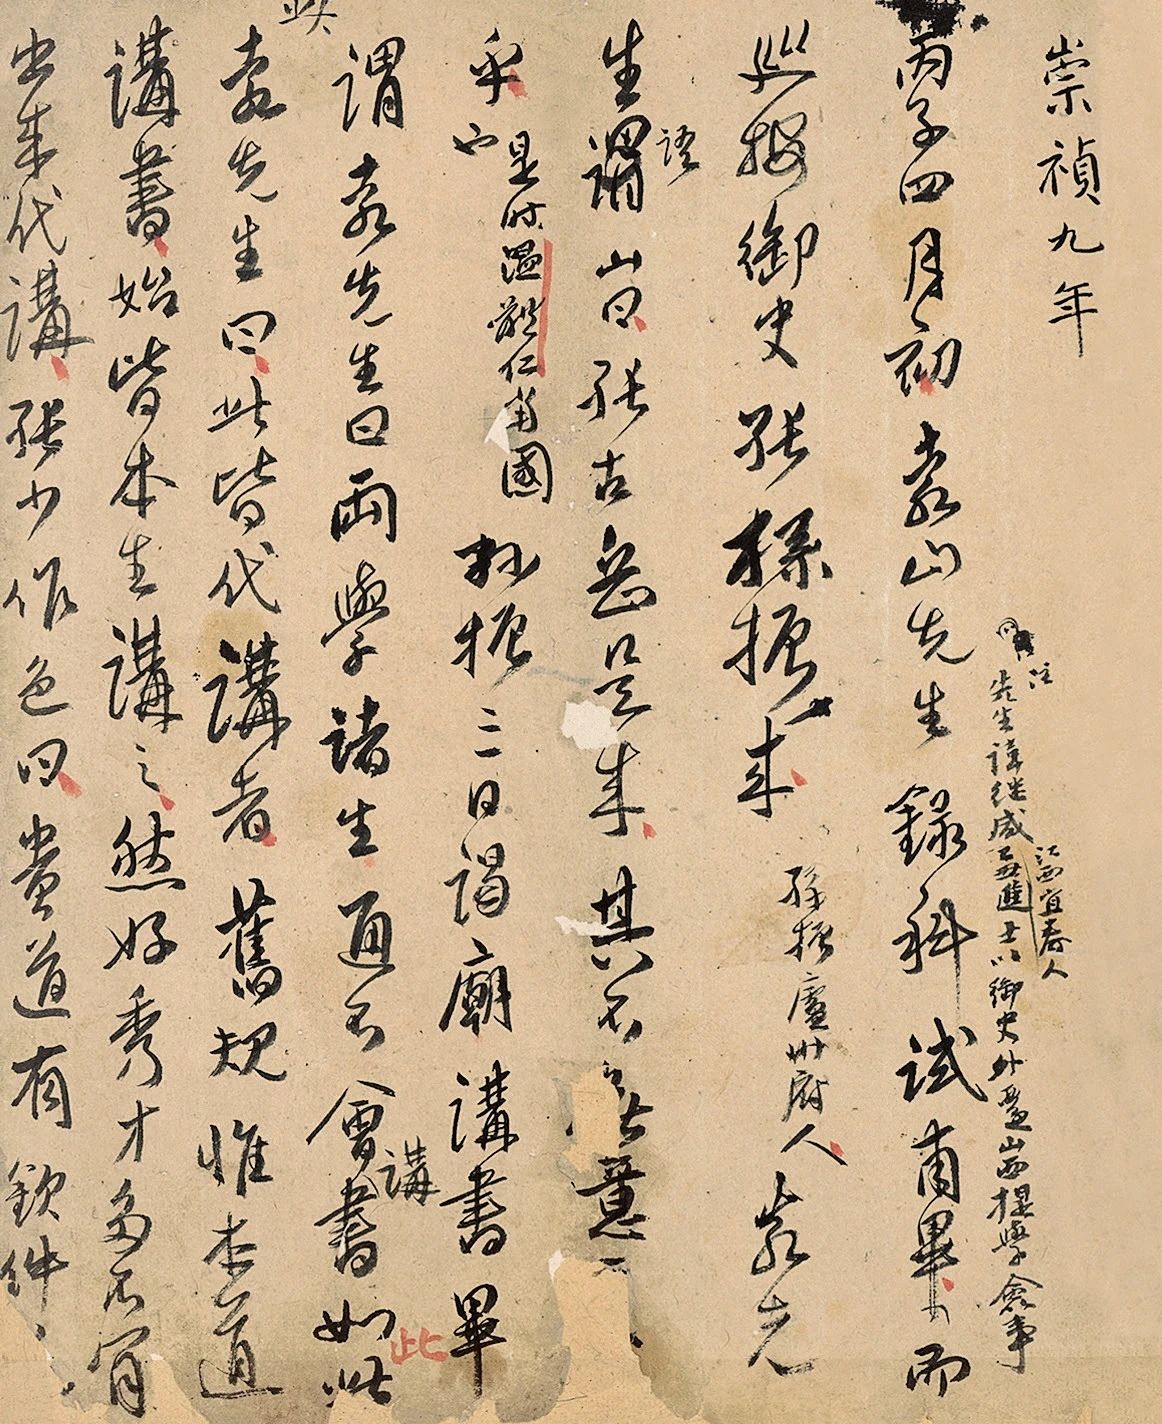 崇禎九年
丙子四月初袁山先生錄科試甫畢而
注
先生諱继咸乙丑進士以御史外遷山西提學僉事
江西宜春人
巡按御史張孫振來
孫振廬州府人
袁先
生謂山曰張古岳只是來其不意
語
乎
是时温體仁當國
孫振三日謁廟講書畢
謂袁先生曰兩學諸生通不會書如此
講
此
袁先生曰此皆代講者舊規惟本道
此
講書始皆本生講之然好秀才多不肯
出来代講張少作色曰貴道有欽件